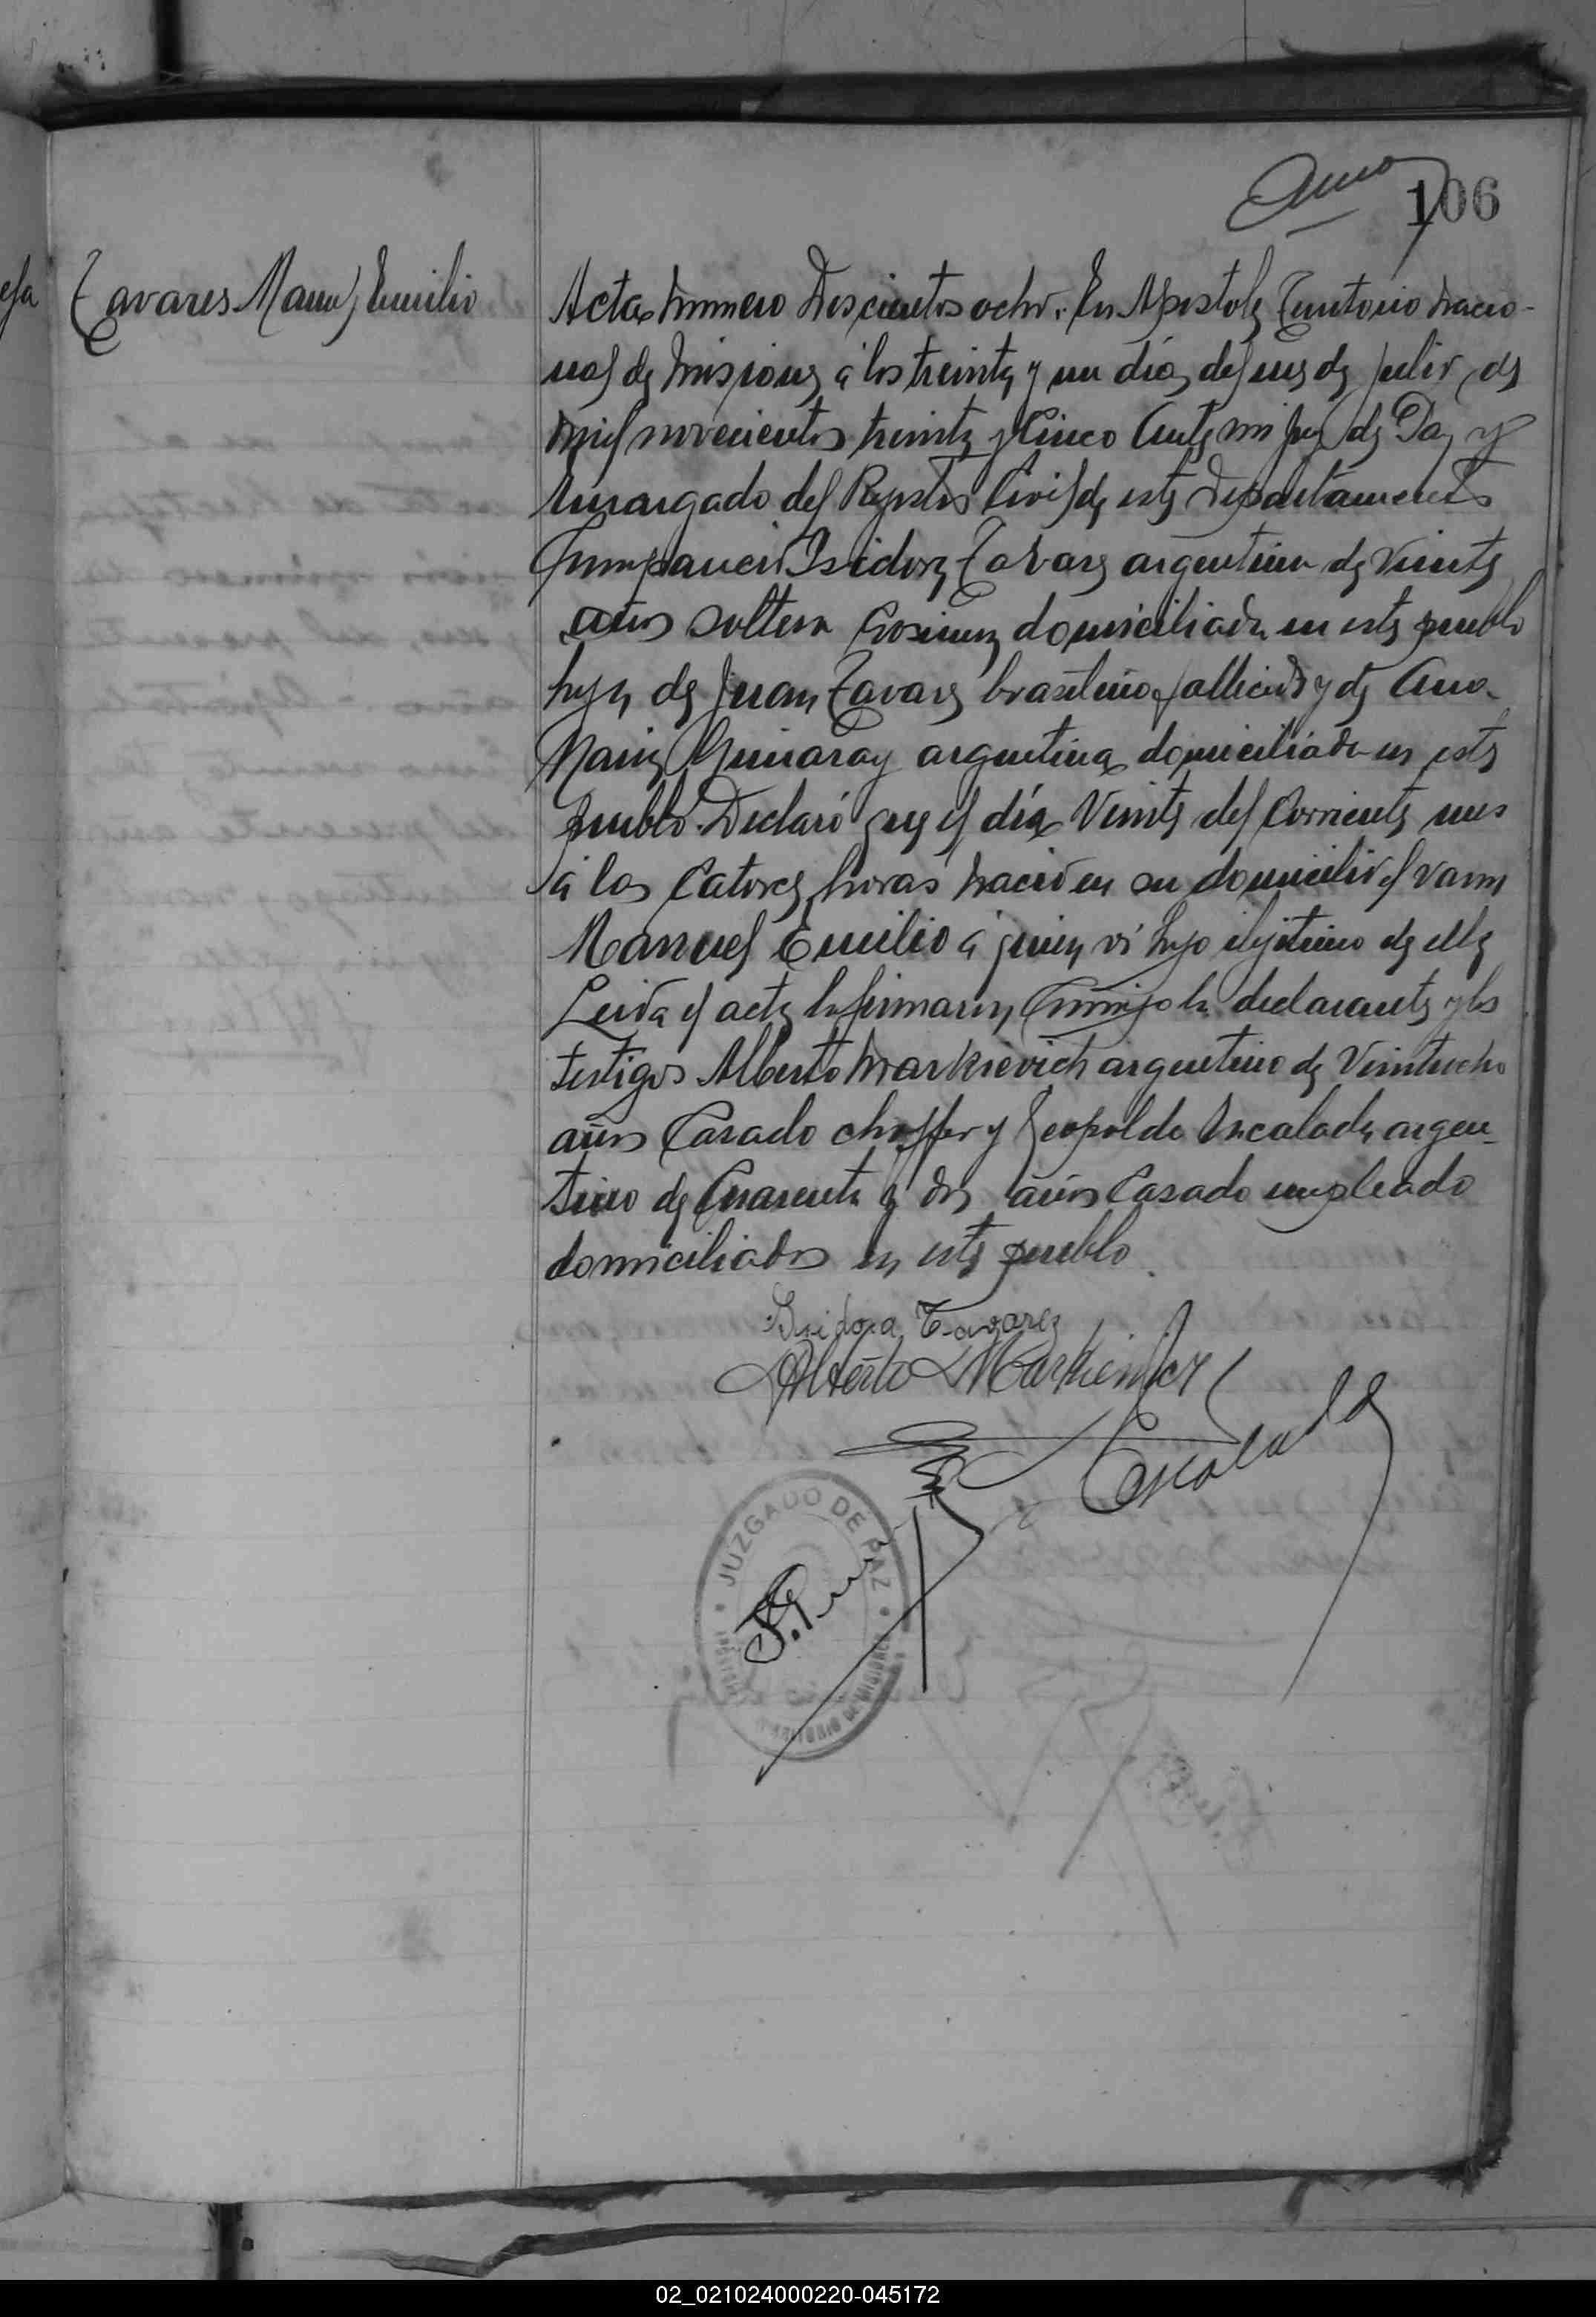 106
Tavares Manuel Emilio
Acta número Doscientos ocho. En Apostoles Territorio Nacio-
nal de Misiones á los treinta y un día del mes de Julio de
mil novecientos treinta y Cinco Ante mi Juez de Paz y
Encargado del Registro Civil de este Departamento
Compareció Isidora Tavares argentina de Veinte
años soltera Cosinera domiciliada en este pueblo
hija de Juan Tavares brasileño fallecido y de Ana
Maria argentina domiciliada en este
pueblo. Declaró que el día Veinte del Corriente mes
á las Catorce horas nació en su domicilio el varon
Manuel Emilio á quien vi hijo ilejitimo de ella
Leida el acta la firmaron Conmigo la declarante y los
testigos Alberto Markievich argentino de Veintiocho
años Casado choffer y Leopoldo Escalada argen-
tino de Cuarenta y dos años Casado empleado
domiciliados en este pueblo
Isidora Tavarez
Alberto Markievicz
Escalada
JUZGADO DE PAZ
TERRITORIO DE MISIONES
02_021024000220-045172